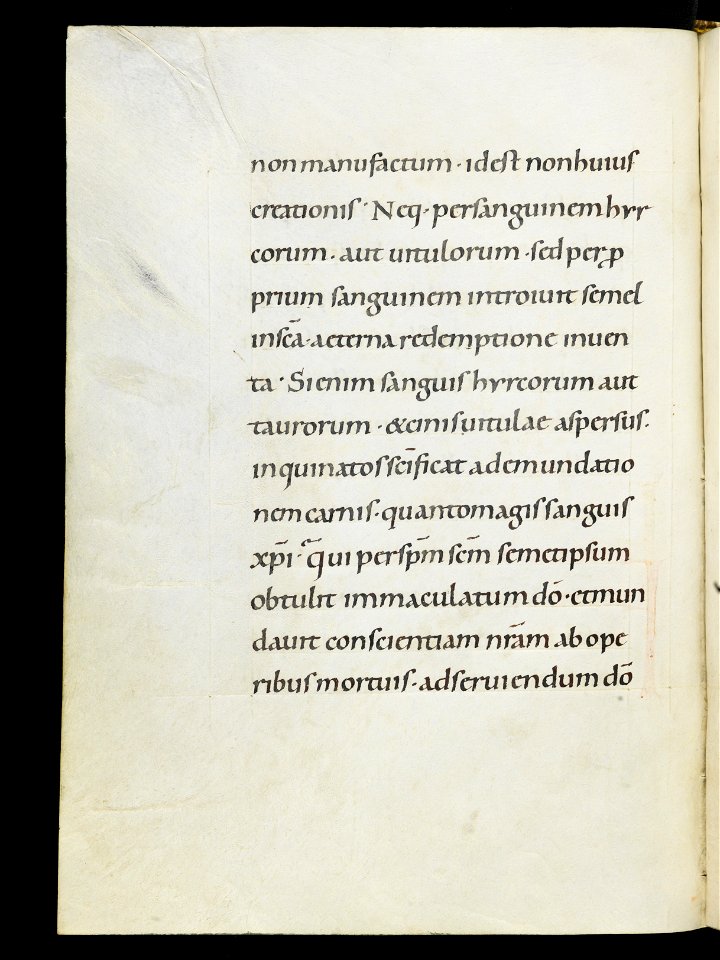 non manufactum · id est non huius
creationis · Neq· per sanguinem hyr
corum · aut uitulorum · sed per ꝓ
prium sanguinem introiuit semel
in sc̄a · aeterna redemptione inuen
ta · Si enim sanguis hyrcorum aut
taurorum · & cinis uitulae aspersus ·
inquinatos sc̄ificat ad emundatio
nem carnis · quanto magis sanguis
xp̄i · q̄ui per sp̄m sc̄m semetipsum
obtulit immaculatum dō · et mun
dauit conscientiam nr̄am ab ope
ribus mortuis · ad seruiendum dō